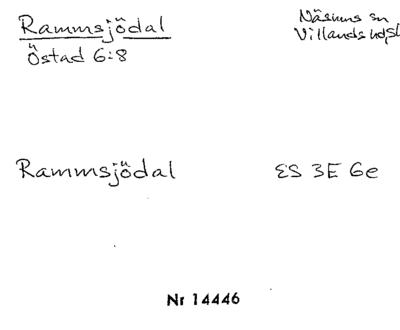 Rammsjödal
Östad 6:8
Näsums sn
Villands hd, Sk
Rammsjödal
ES 3E 6e
Nr 14446